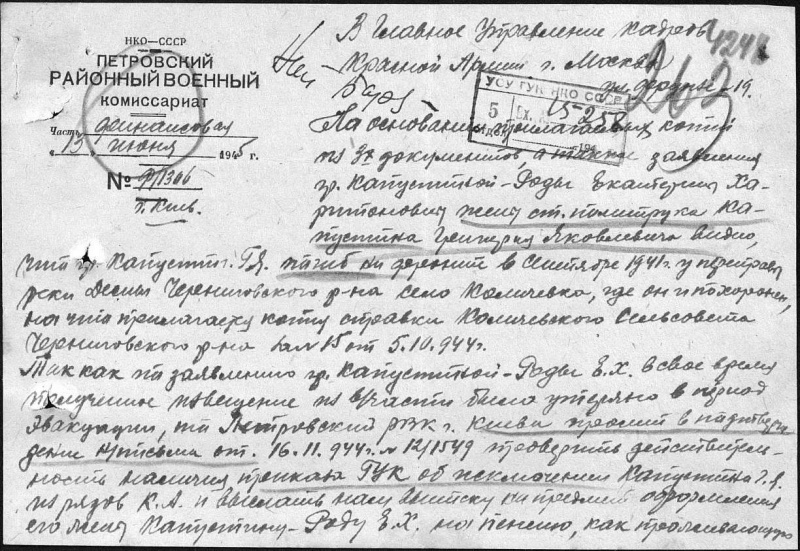 НКО—СССР
ПЕТРОВСКИЙ
РАЙОННЫЙ ВОЕННЫЙ
комиссариат
Часть финансовая
15 июня 1945 г.
№ 9/1306
г. Киев.
В Главное Управление кадров
Красной Армии г. Москва
ул. Фрунзе - 19.
4244
УСУ ГУК НКО СССР
5
Вх.
15-258
194
На основании прилагаемых копий
из 3х документов, а также заявления
гр. Капустиной-Роды Екатерины Ха-
ритоновны жены ст. политрука Ка-
пустина Григория Яковлевича видно,
что гр. Капустин Г.Я. погиб на фронте в сентябре 1941 г. у переправы
реки Десны Черниговского р-на село Количевка, где он и похоронен,
на что прилагаем копия справки Количевского Сельсовета
Черниговского р-на за №15 от 5.10.944 г.
Так как по заявлению гр. Капустиной-Роды Е.Х. в свое время
полученное извещение из в/части было утеряно в период
Эвакуации, то Петровский РВК г. Киева просит в подтверж
дение н/письма от 16.11.944 г. № 12/1549 проверить действитель-
ность наличия приказа ГУК об исключении Капустина Г.Я.
из рядов К.А. и выслать нам выписку на предмет оформления
его жену Капустину-Роду Е.Х. на пенсию, как проживающую